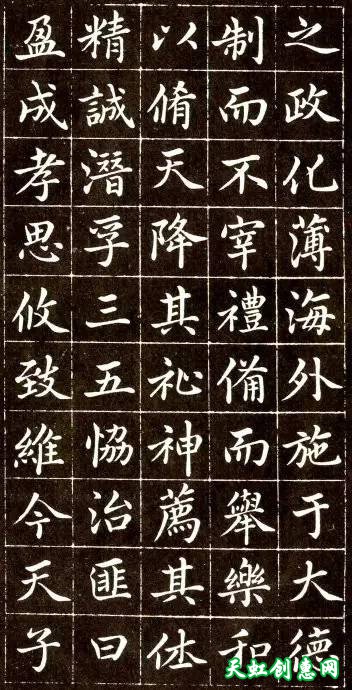 之政化薄海外施于大德
制而不宰禮備而舉樂和
以脩天降其祉神薦其休
精誠潛孚三五恊治匪曰
盈成孝思攸致維今天子
天虹创意网